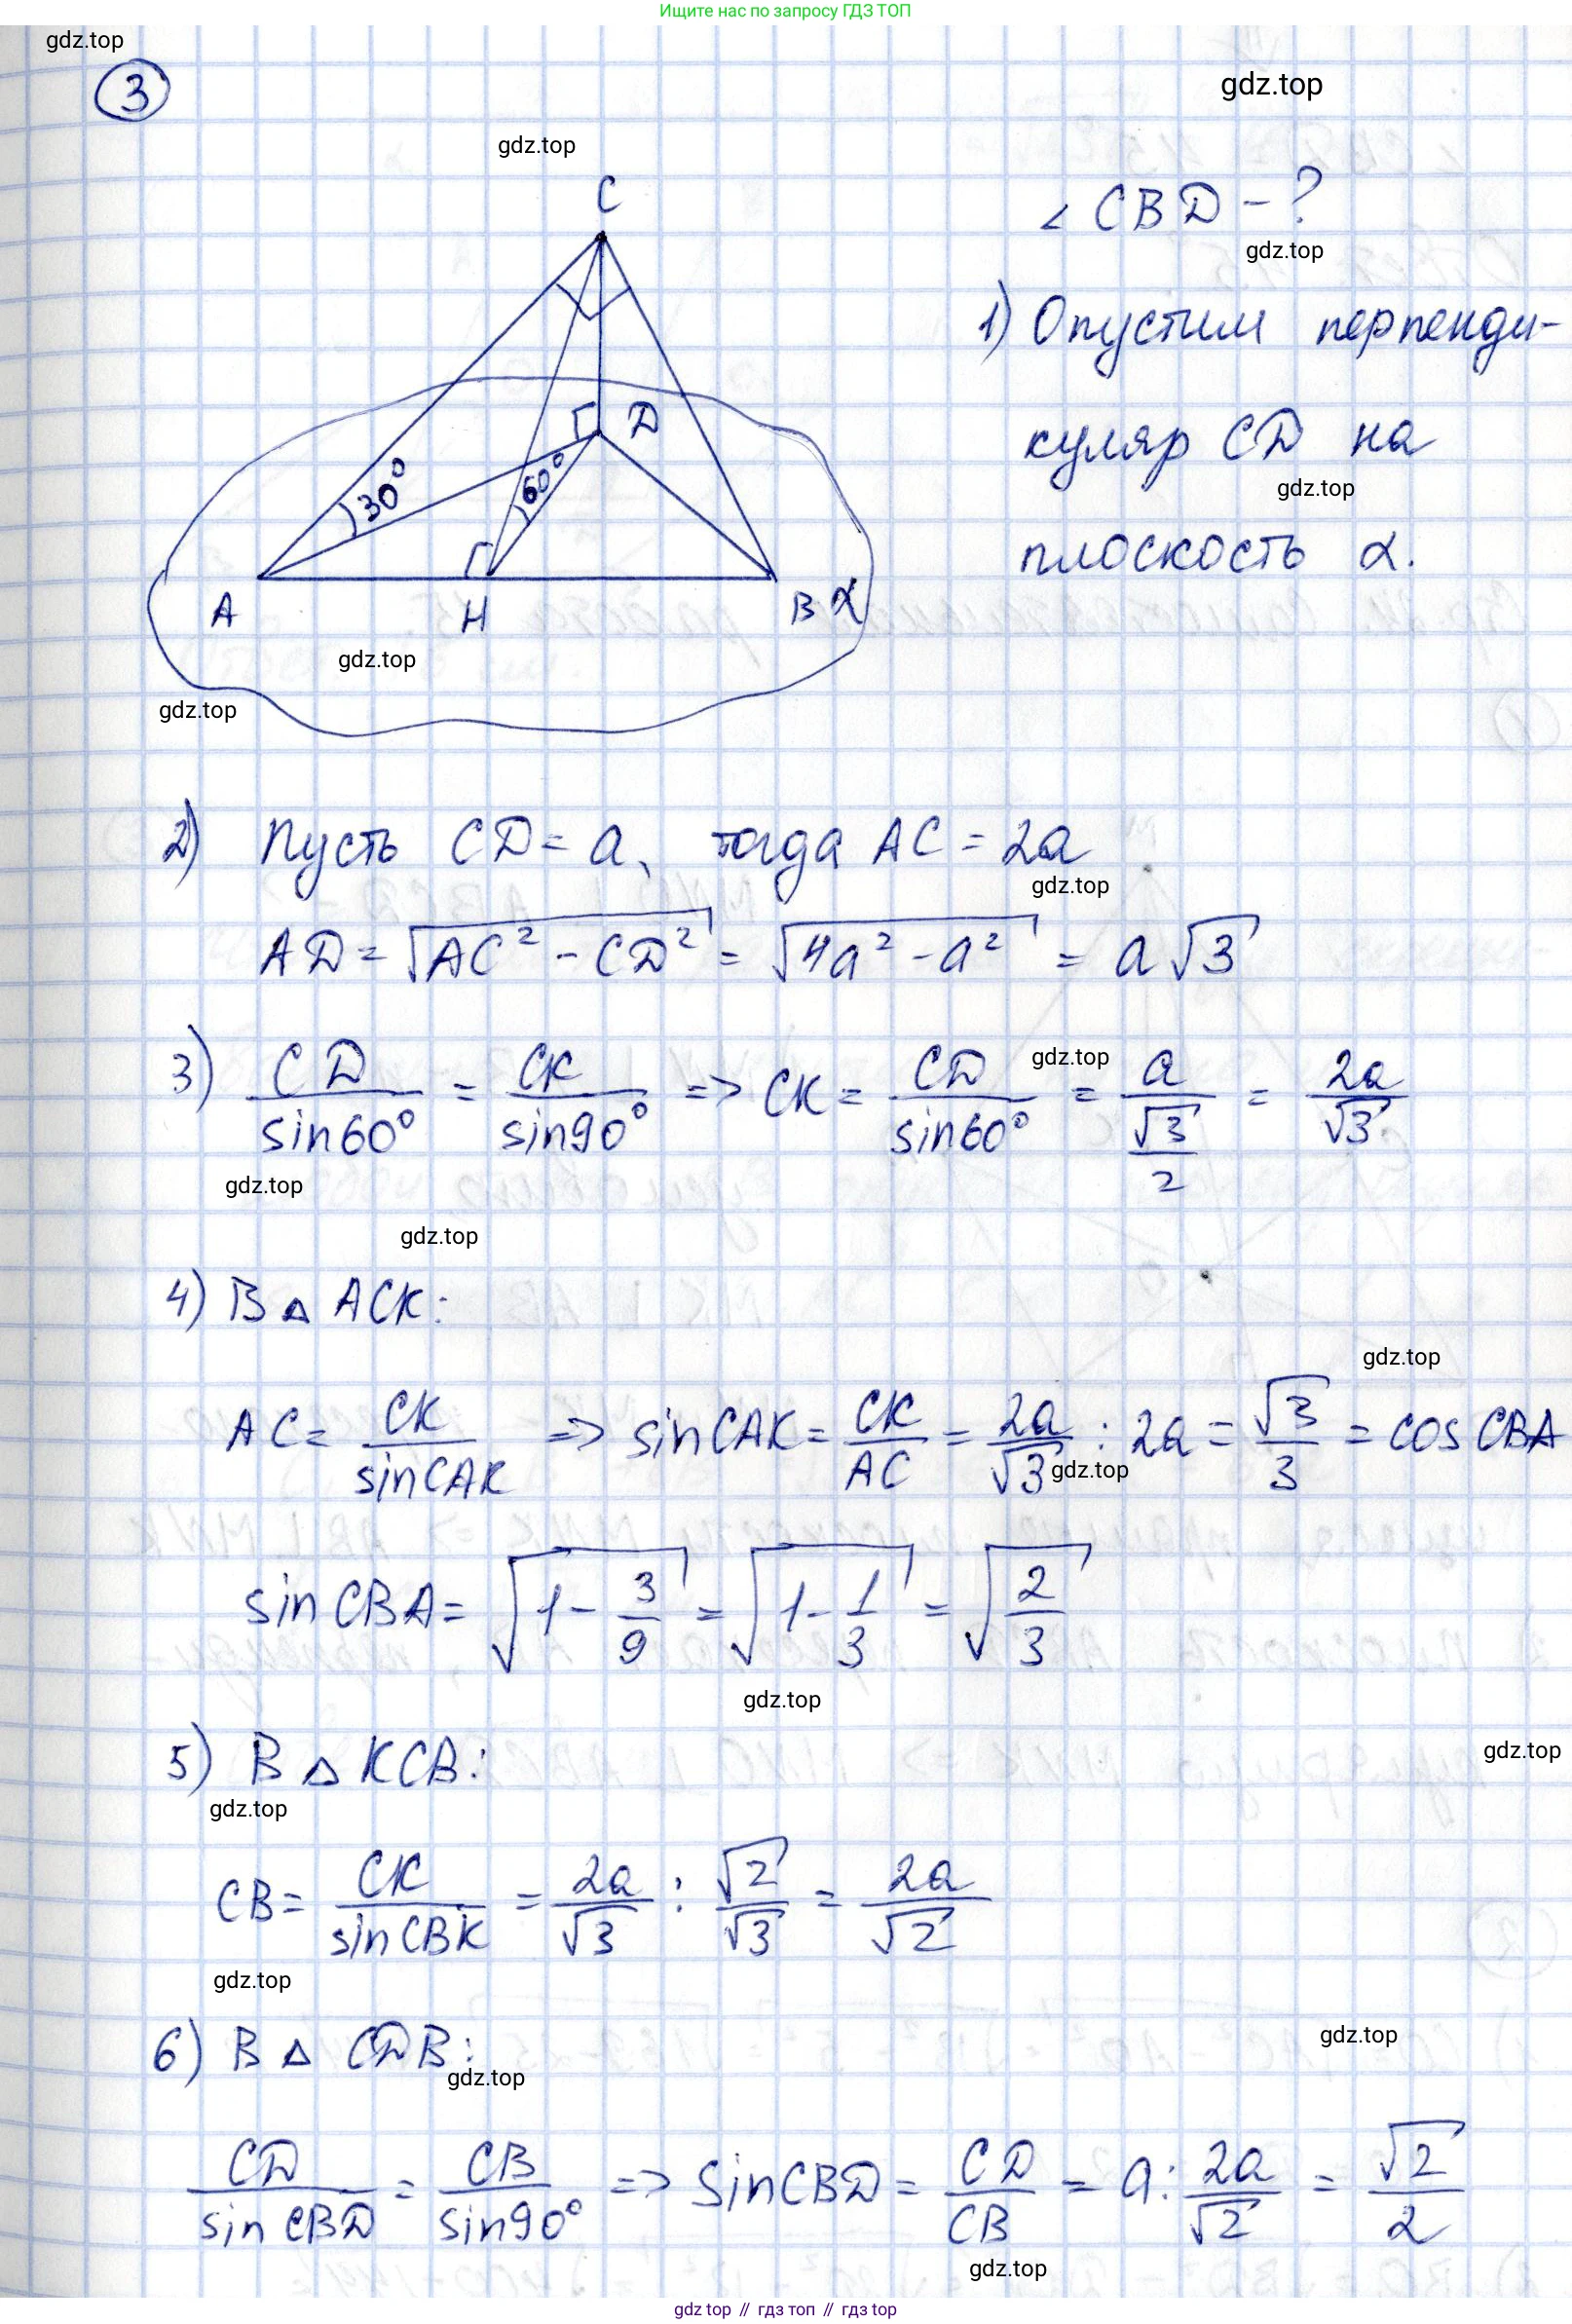 Ищите нас по запросу ГДЗ ТОП
gdz.top
3
gdz.top
gdz.top
C
∠ CBD - ?
gdz.top
1) Опустим перпенди-
куляр CD на
gdz.top
плоскость α.
D
30°
60°
A
H
B α
gdz.top
gdz.top
2) Пусть CD = a, тогда AC = 2a
gdz.top
AD = √(AC² - CD²) = √(4a² - a²) = a√3
3) CD/sin60° = CK/sin90° => CK = CD/sin60° = a/(√3/2) = 2a/√3
gdz.top
gdz.top
gdz.top
4) В △ ACK:
gdz.top
AC = CK/sinCAK => sinCAK = CK/AC = 2a/√3 : 2a = √3/3 = cos CBA
gdz.top
sin CBA = √(1 - 3/9) = √(1 - 1/3) = √(2/3)
gdz.top
5) В △ KCB:
gdz.top
gdz.top
CB = CK/sinCBK = 2a/√3 : √2/√3 = 2a/√2
gdz.top
6) В △ CDB:
gdz.top
gdz.top
CD/sin CBD = CB/sin90° => sinCBD = CD/CB = a : 2a/√2 = √2/2
gdz.top
gdz top // гдз топ // гдз top